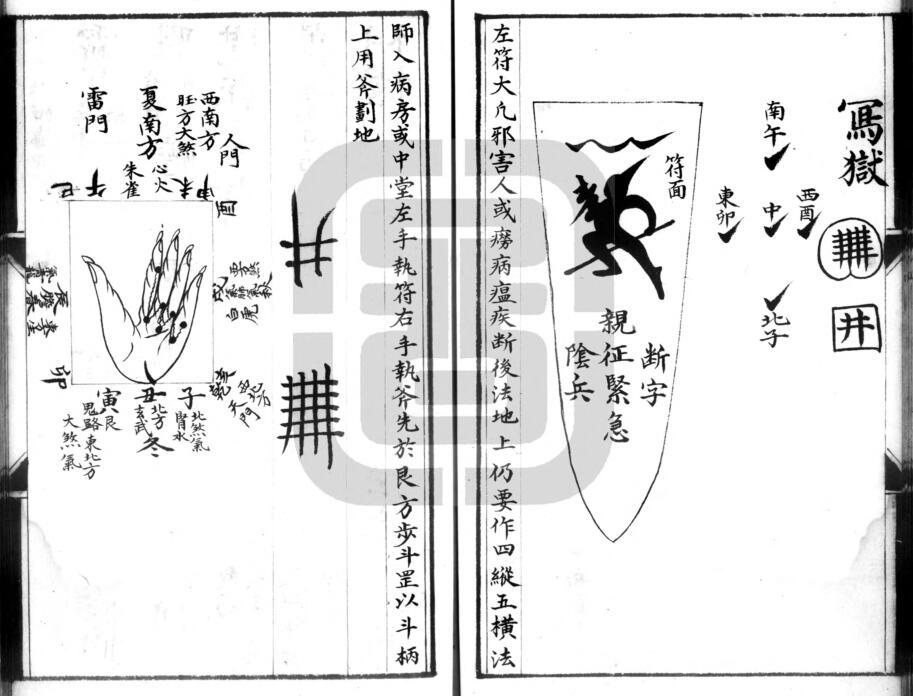 冩獄
井
南午
西酉
中
東卯
北子
符面
断字
親征緊急
陰兵
左符大凡邪害人或癆病瘟疾断後法地上仍要作四縱五橫法
師入病房或中堂左手執符右手執斧先於艮方步斗罡以斗柄
上用斧劃地
人門
西南方
旺方大煞
夏南方
心火
朱雀
雷門
未
申
午
巳
酉
戌
白虎
卯
子
北煞氣
腎水
丑
北方
玄武
冬
寅
艮
鬼路東北方
大煞氣